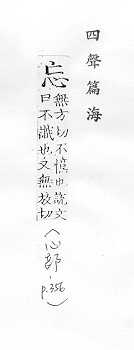 四聲篇海
忘
無方切不憶也說文
曰不識也又無放切
（心部，p.356）